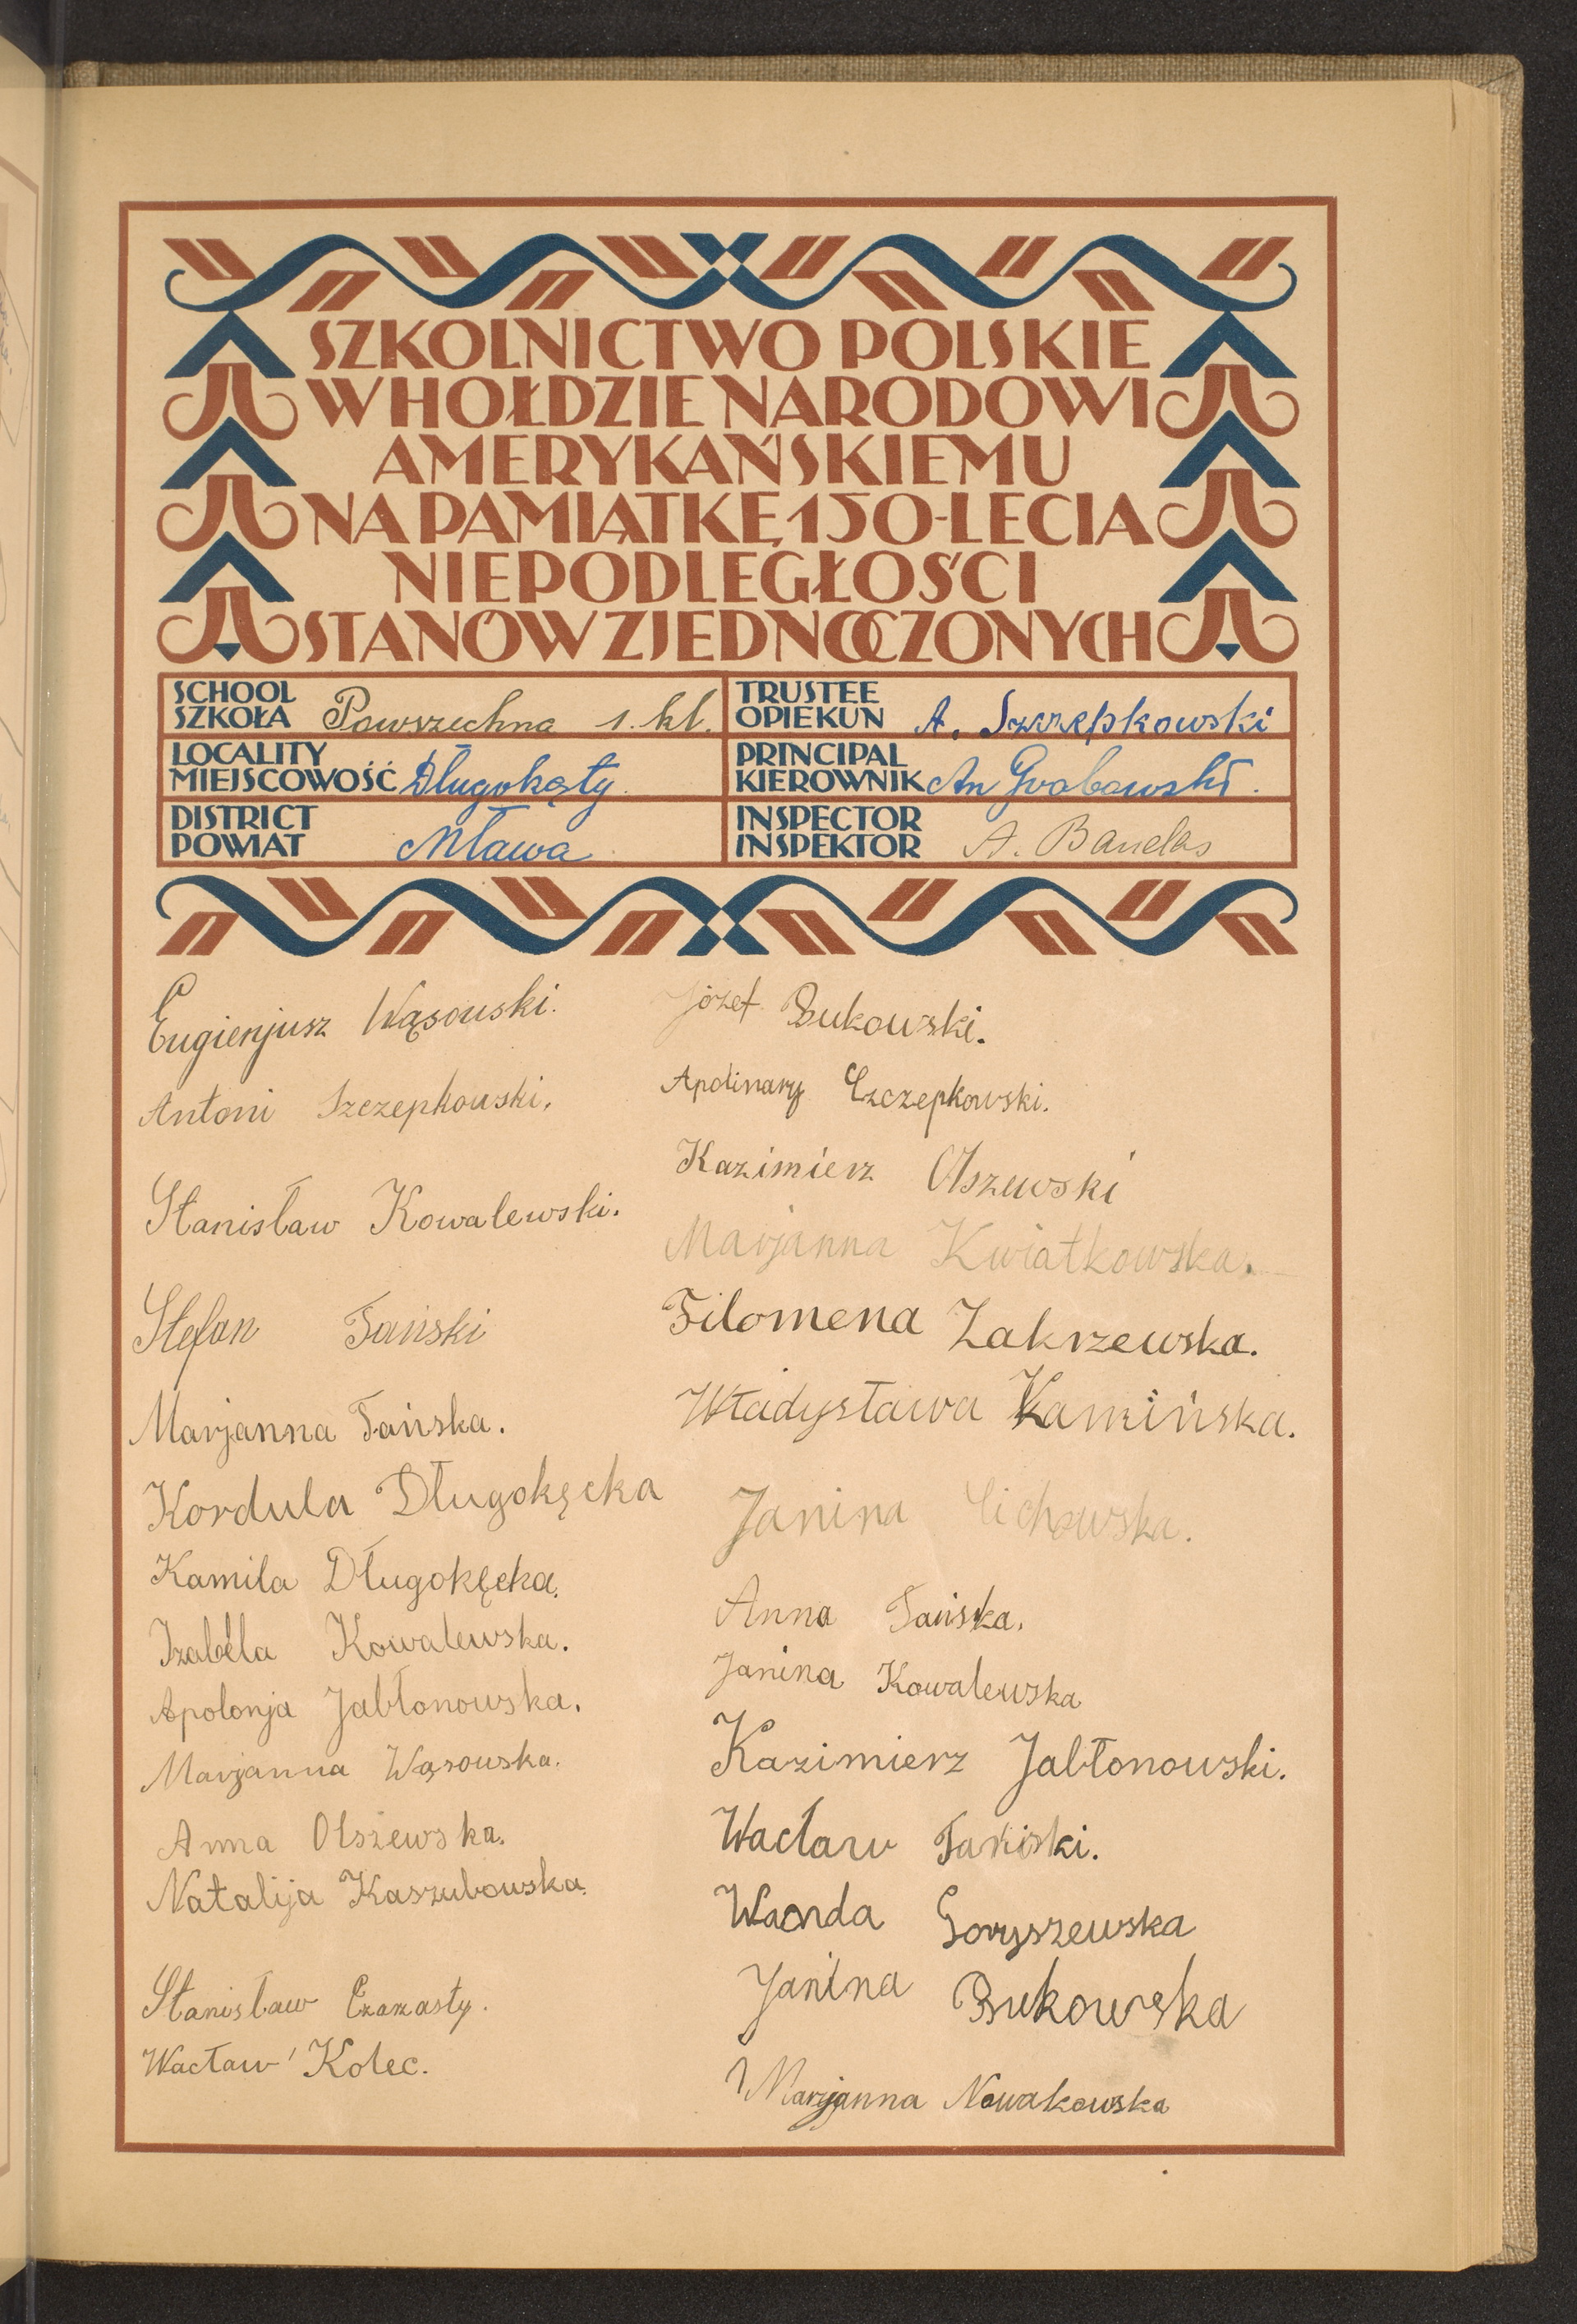 SZKOLNICTWO POLSKIE
W HOŁDZIE NARODOWI
AMERYKAŃSKIEMU
NA PAMIĄTKĘ 150-LECIA
NIEPODLEGŁOŚCI
STANÓW ZJEDNOCZONYCH
SCHOOL
SZKOŁA Powszechna 1. kl.
TRUSTEE
OPIEKUN A. Szczepkowski
LOCALITY
MIEJSCOWOŚĆ Długokąty
PRINCIPAL
KIEROWNIK An Grabowski.
DISTRICT
POWIAT Mława
INSPECTOR
INSPEKTOR A.
Eugienjusz Wąsouski.
Antoni Szczepkouski.
Stanisław Kowalewski.
Stefan Tański
Marjanna Tańska.
Kordula Długokęcka
Kamila Długokęcka.
Izabela Kowalewska.
Apolonja Jabłonowska.
Marjanna Wąsouska.
Anna Olszewska.
Natalija Kaszubowska.
Stanisław Czarzasty.
Wacław Kolec.
Józef Bukowski.
Apolinary Szczepkowski.
Kazimierz Olszewski
Marjanna Kwiatkowska.
Filomena Zakrzewska.
Władysława Kamińska.
Janina Cichowska.
Anna Tańska.
Janina Kowalewska
Kazimierz Jabłonowski.
Wacław Tański.
Wanda Goryszewska
Janina Bukowska
Marjanna Nowakowska